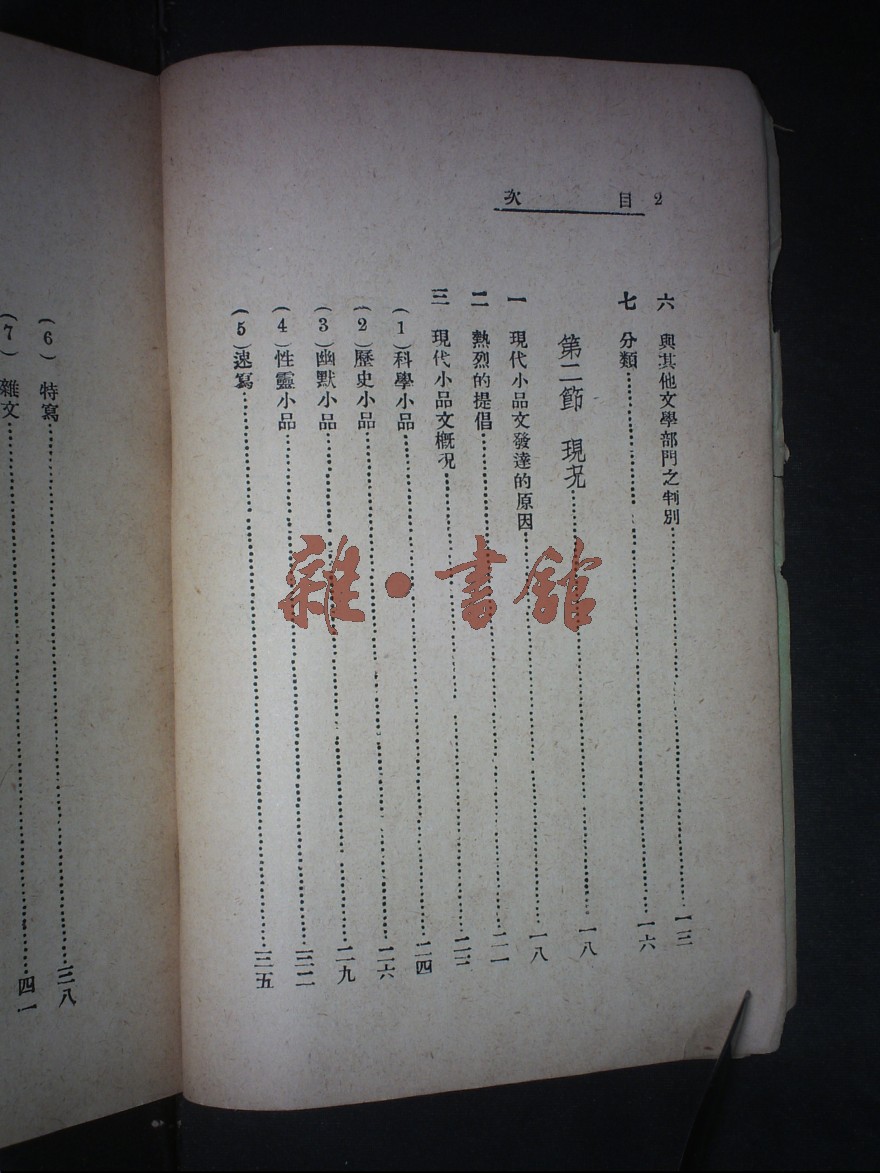 2 目次
六 與其他文學部門之判別……一三
七 分類……一六
第二節 現況……一八
一 現代小品文發達的原因……一八
二 熱烈的提倡……二一
三 現代小品文概況……二三
(1)科學小品……二四
(2)歷史小品……二六
(3)幽默小品……二九
(4)性靈小品……三二
(5)速寫……三五
(6)特寫……三八
(7)雜文……四一
雜·書舘